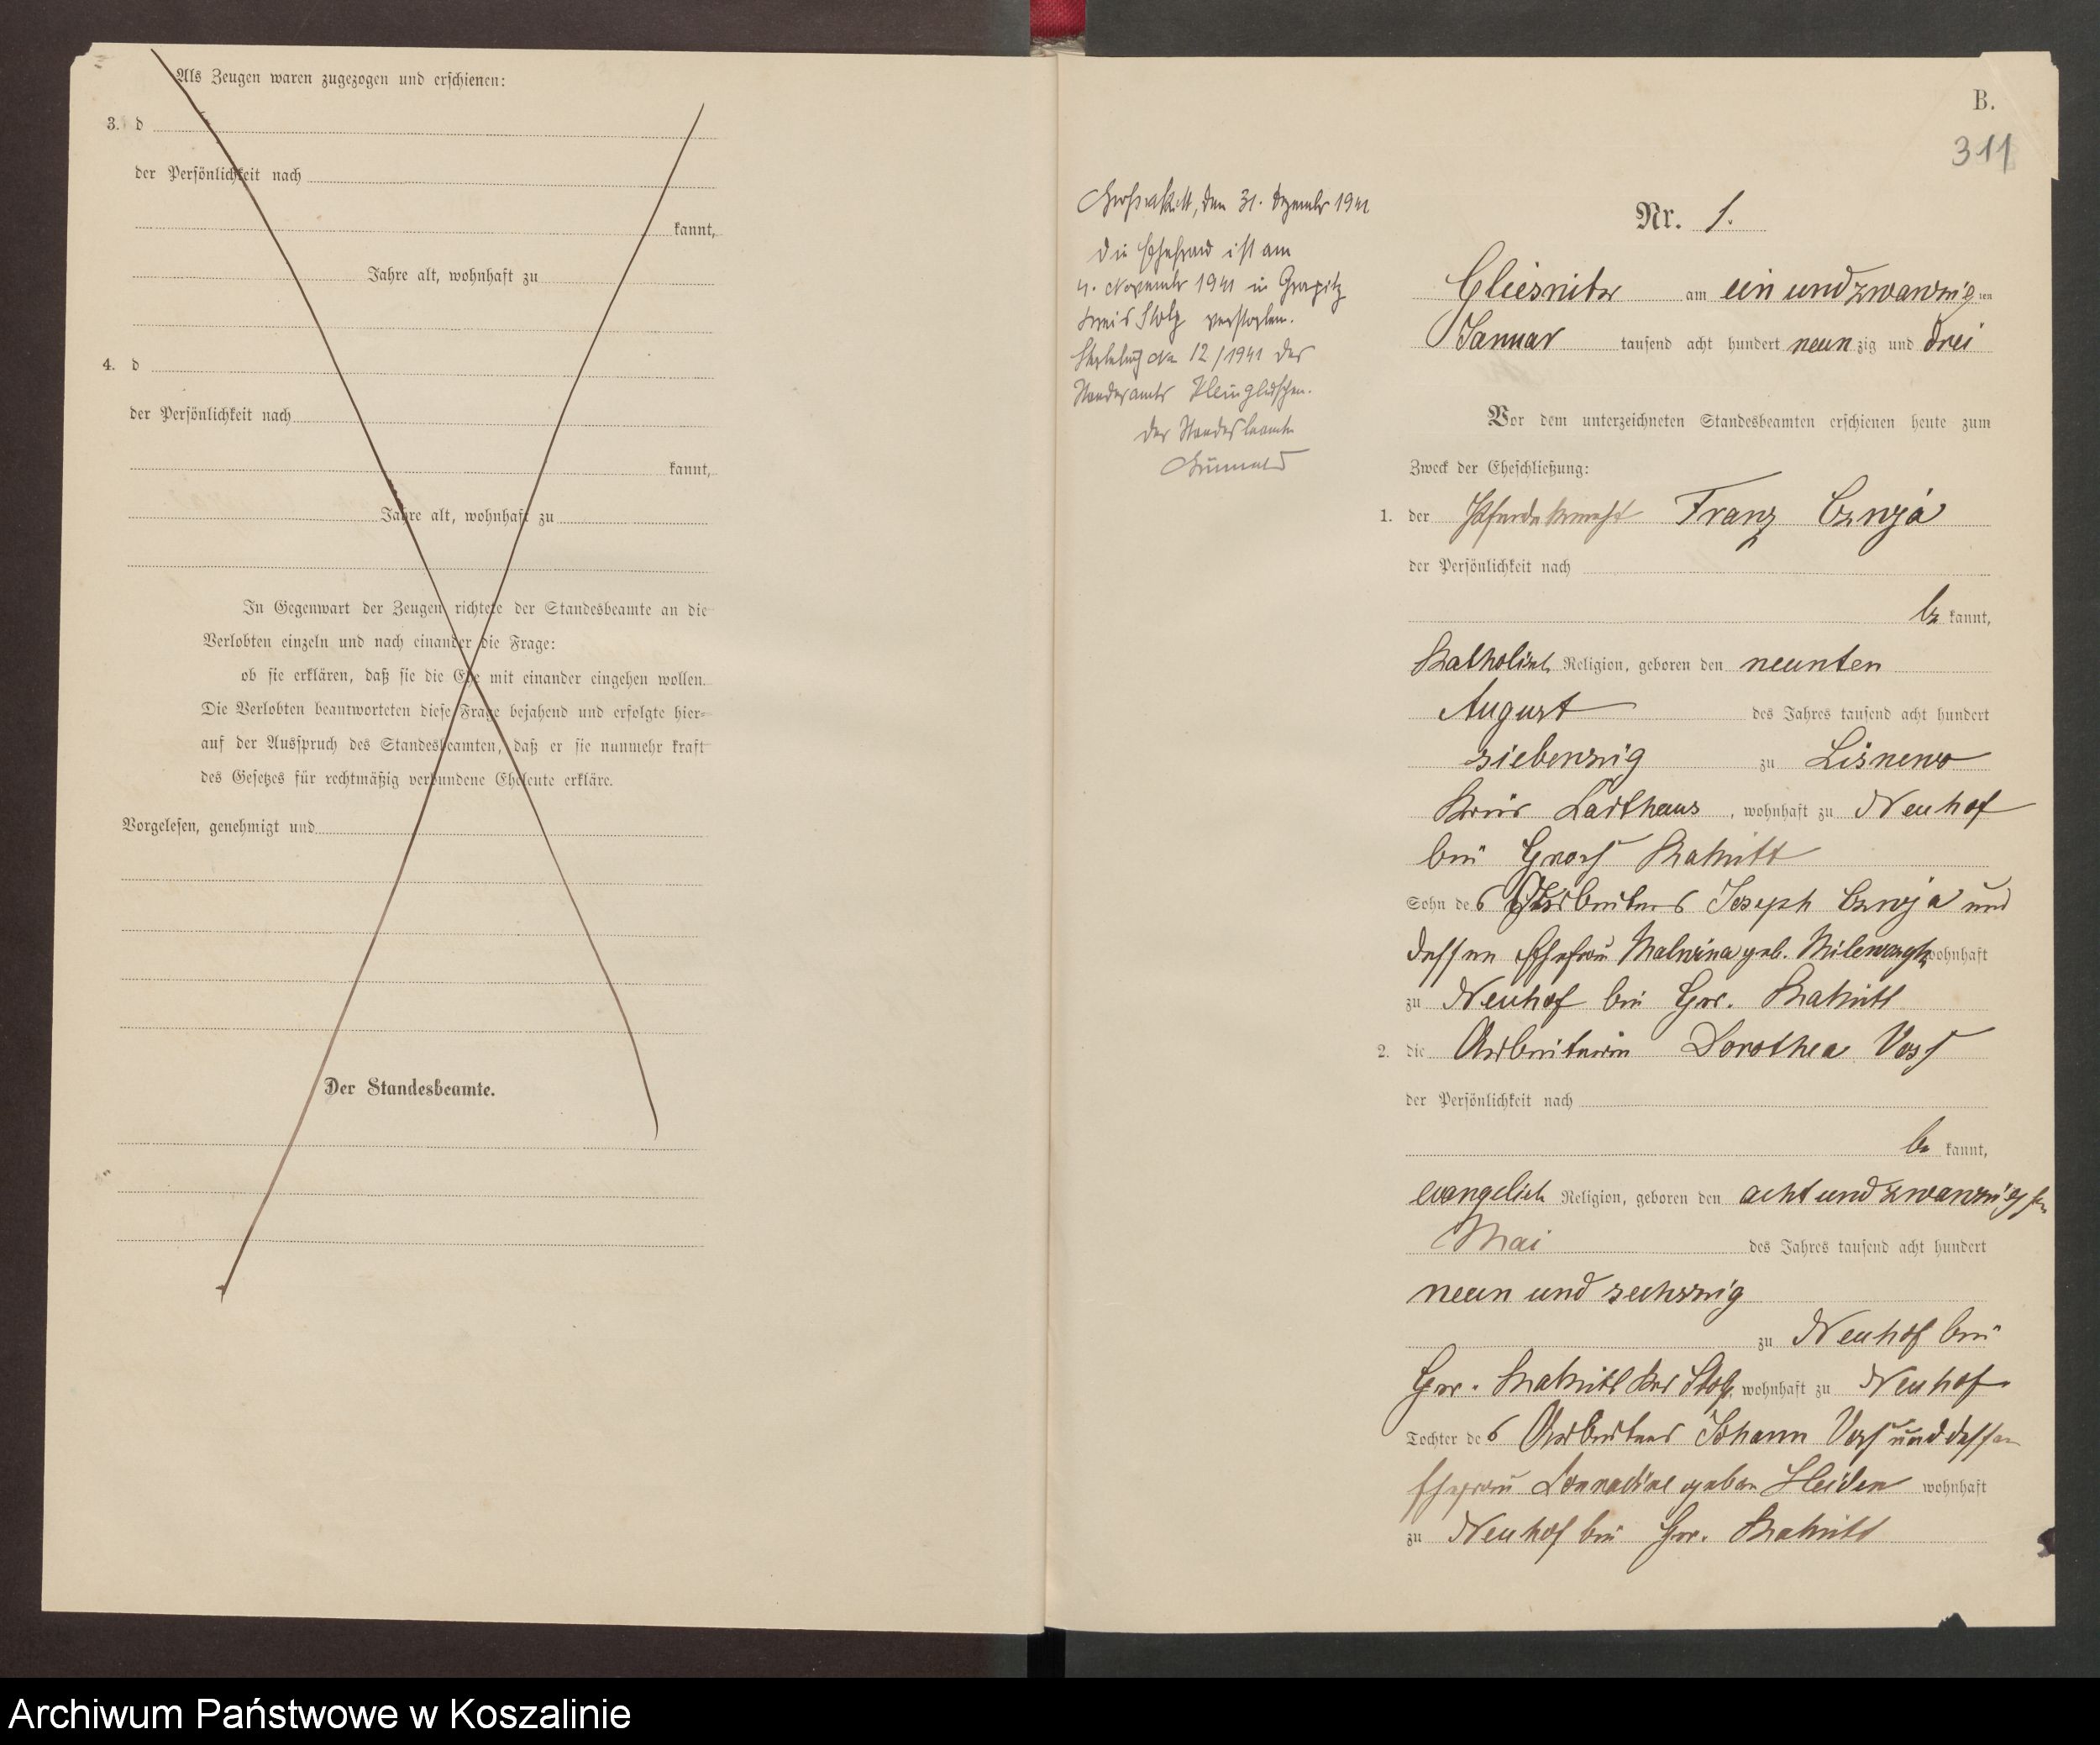 Als Zeugen waren zugezogen und erschienen:
3. d
der Persönlichkeit nach
kannt,
Jahre alt, wohnhaft zu
4. d
der Persönlichkeit nach
kannt,
Jahre alt, wohnhaft zu
In Gegenwart der Zeugen richtete der Standesbeamte an die
Verlobten einzeln und nach einander die Frage:
ob sie erklären, daß sie die Ehe mit einander eingehen wollen.
Die Verlobten beantworteten diese Frage bejahend und erfolgte hier-
auf der Ausspruch des Standesbeamten, daß er sie nunmehr kraft
des Gesetzes für rechtmäßig verbundene Eheleute erkläre.
Vorgelesen, genehmigt und
Der Standesbeamte.
B.
311
den 31. Dezember 1941
Die Ehefrau ist am
4. November 1941 in Grapitz
Kreis Stolp verstorben.
12/1941 des
Standesamts Kleingluschen.
Der Standesbeamte
Grünwald
Nr. 1.
Gliesnitz am ein und zwanzigten
Januar tausend acht hundert neunzig und drei
Vor dem unterzeichneten Standesbeamten erschienen heute zum
Zweck der Eheschließung:
1. der Pferdeknecht Franz Czwja
der Persönlichkeit nach
be kannt,
katholisch Religion, geboren den neunten
August des Jahres tausend acht hundert
siebenzig zu Lisnewo
Kreis Carthaus, wohnhaft zu Neuhof
bei Gross Rakitt
Sohn des Arbeiters Joseph Czwja und
dessen Ehefrau Malwina geb. wohnhaft
zu Neuhof bei Gr. Rakitt
2. die Arbeiterin Dorothea Voss
der Persönlichkeit nach
be kannt,
evangelisch Religion, geboren den acht und zwanzigsten
Mai des Jahres tausend acht hundert
neun und sechszig
zu Neuhof bei
Gr. Rakitt Krs Stolp, wohnhaft zu Neuhof
Tochter des Arbeiters Johann Voss und dessen
Ehefrau geboren Heiden wohnhaft
zu Neuhof bei Gr. Rakitt
Archiwum Państwowe w Koszalinie